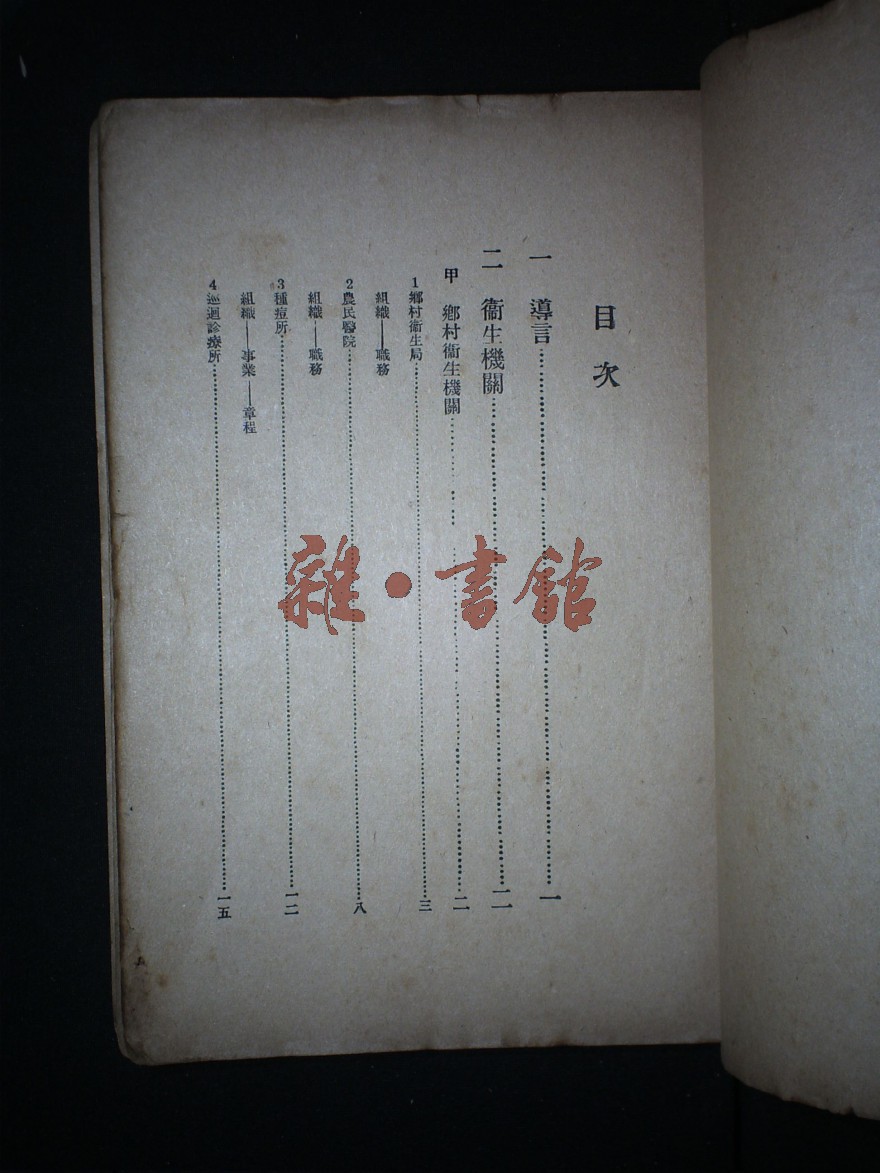 目次
一 導言……一
二 衞生機關……二
甲 鄉村衞生機關……二
1鄉村衞生局……三
組織——職務
2農民醫院……八
組織——職務
3種痘所……一二
組織——事業——章程
4巡迴診療所……一五
雜·書館